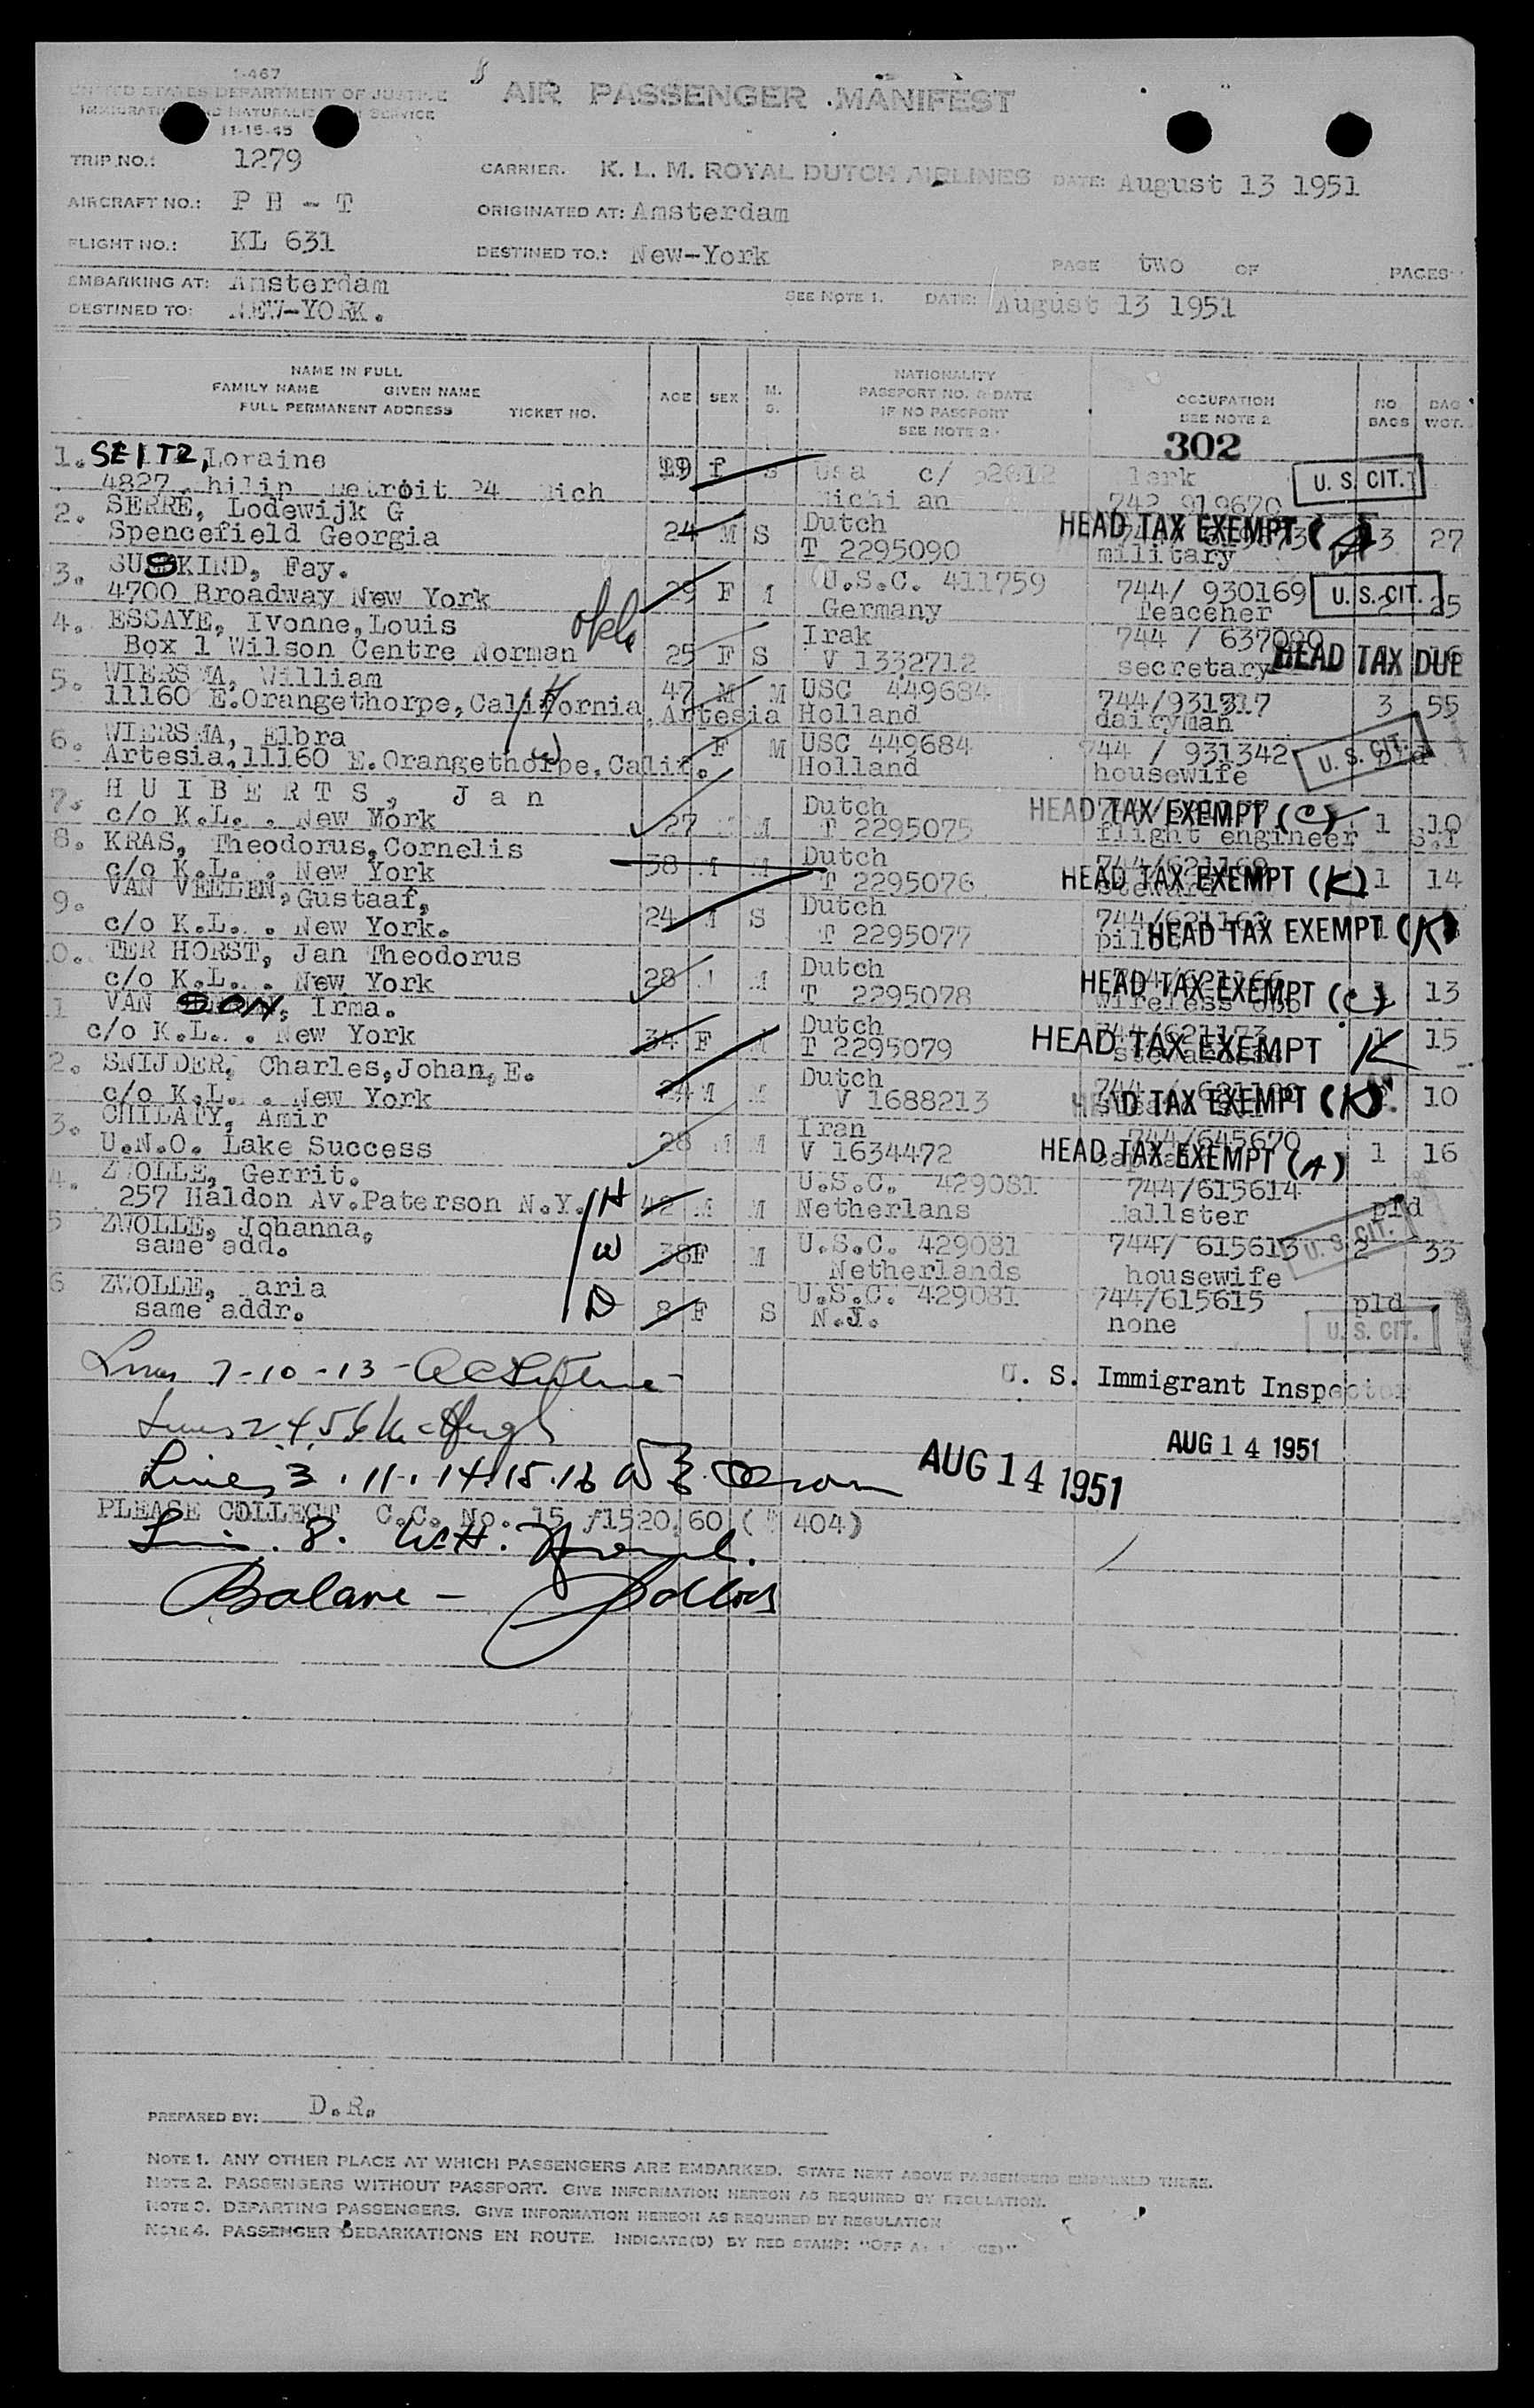 I-467
UNITED STATES DEPARTMENT OF JUSTICE
IMMIGRATION AND NATURALIZATION SERVICE
11-15-45
AIR PASSENGER MANIFEST
TRIP NO.: 1279
CARRIER. K. L. M. ROYAL DUTCH AIRLINES DATE: August 13 1951
AIRCRAFT NO.: P H - T
ORIGINATED AT: Amsterdam
FLIGHT NO.: KL 631
DESTINED TO.: New-York
PAGE two OF PAGES
EMBARKING AT: Amsterdam
SEE NOTE 1. DATE: August 13 1951
DESTINED TO: NEW-YORK.
NAME IN FULL
FAMILY NAME GIVEN NAME
FULL PERMANENT ADDRESS TICKET NO.
AGE SEX M. S.
NATIONALITY
PASSPORT NO. & DATE
IF NO PASSPORT
SEE NOTE 2
OCCUPATION
SEE NOTE 2
NO. BAGS
BAG WGT.
302
1. SEITZ, Loraine f S Usa c/ lerk U. S. CIT.
4827 hilip Detroit 24 Mich 742 919670
2. SERRE, Lodewijk G 24 M S Dutch HEAD TAX EXEMPT 3 27
Spencefield Georgia T 2295090 military
3. SUSSKIND, Fay. 29 F M U.S.C. 411759 744/ 930169 U. S. CIT. 25
4700 Broadway New York Germany Teacener
4. ESSAYE, Ivonne, Louis 25 F S Irak 744 / 637090 HEAD TAX DUE
Box 1 Wilson Centre Norman V 1332712 secretary
5. WIERSMA, William 47 M M USC 449684 744/931317 3 55
11160 E.Orangethorpe, California, Artesia Holland dairyman
H
6. WIERSMA, Elbra F M USC 449684 744 / 931342 U. S. CIT.
Artesia, 11160 E.Orangethorpe, Calif. Holland housewife
W
7. H U I B E R T S, J a n 27 M Dutch HEAD TAX EXEMPT (C) 1 10
c/o K.L. . New York T 2295075 flight engineer
8. KRAS, Theodorus, Cornelis 38 M M Dutch HEAD TAX EXEMPT (K) 1 14
c/o K.L. . New York T 2295076 744/621169
9. VAN VEELEN, Gustaaf, 24 M S Dutch HEAD TAX EXEMPT (K)
c/o K.L. . New York. T 2295077
0. TER HORST, Jan Theodorus 28 M Dutch HEAD TAX EXEMPT (C) 13
c/o K.L. . New York T 2295078
1 VAN , Irma. 34 F M Dutch HEAD TAX EXEMPT K 15
c/o K.L. . New York T 2295079 744/621173
2. SNIJDER, Charles, Johan, E. 24 M M Dutch HEAD TAX EXEMPT (K) 10
c/o K.L. . New York V 1688213
3. CHILATY, Amir 28 M M Iran 744/645670 HEAD TAX EXEMPT (A) 1 16
U.N.O. Lake Success V 1634472
4. ZWOLLE, Gerrit. H 42 M M U.S.C. 429081 744/615614 pld
257 Haldon Av.Paterson N.Y. Netherlans
5 ZWOLLE, Johanna, W 38F M U.S.C. 429081 744/ 615613 U. S. CIT. 2 33
same add. Netherlands housewife
6 ZWOLLE, aria D 8 F S U.S.C. 429081 744/615615 pld
same addr. N.J. none U. S. CIT.
Lines 7-10-13
U. S. Immigrant Inspector
Lines 2 4 5 6
AUG 14 1951
AUG 14 1951
Lines 3. 11. 14. 15. 16
PLEASE COLLECT C.C. No. 15 f1520.60 ( 404)
Line. 8. W.H.
Balance -
PREPARED BY: D.R.
NOTE 1. ANY OTHER PLACE AT WHICH PASSENGERS ARE EMBARKED. STATE NEXT ABOVE PASSENGERS EMBARKED THERE.
NOTE 2. PASSENGERS WITHOUT PASSPORT. GIVE INFORMATION HEREON AS REQUIRED BY REGULATION.
NOTE 3. DEPARTING PASSENGERS. GIVE INFORMATION HEREON AS REQUIRED BY REGULATION
NOTE 4. PASSENGER DEBARKATIONS EN ROUTE. INDICATE(D) BY RED STAMP: "OFF AT CE)"